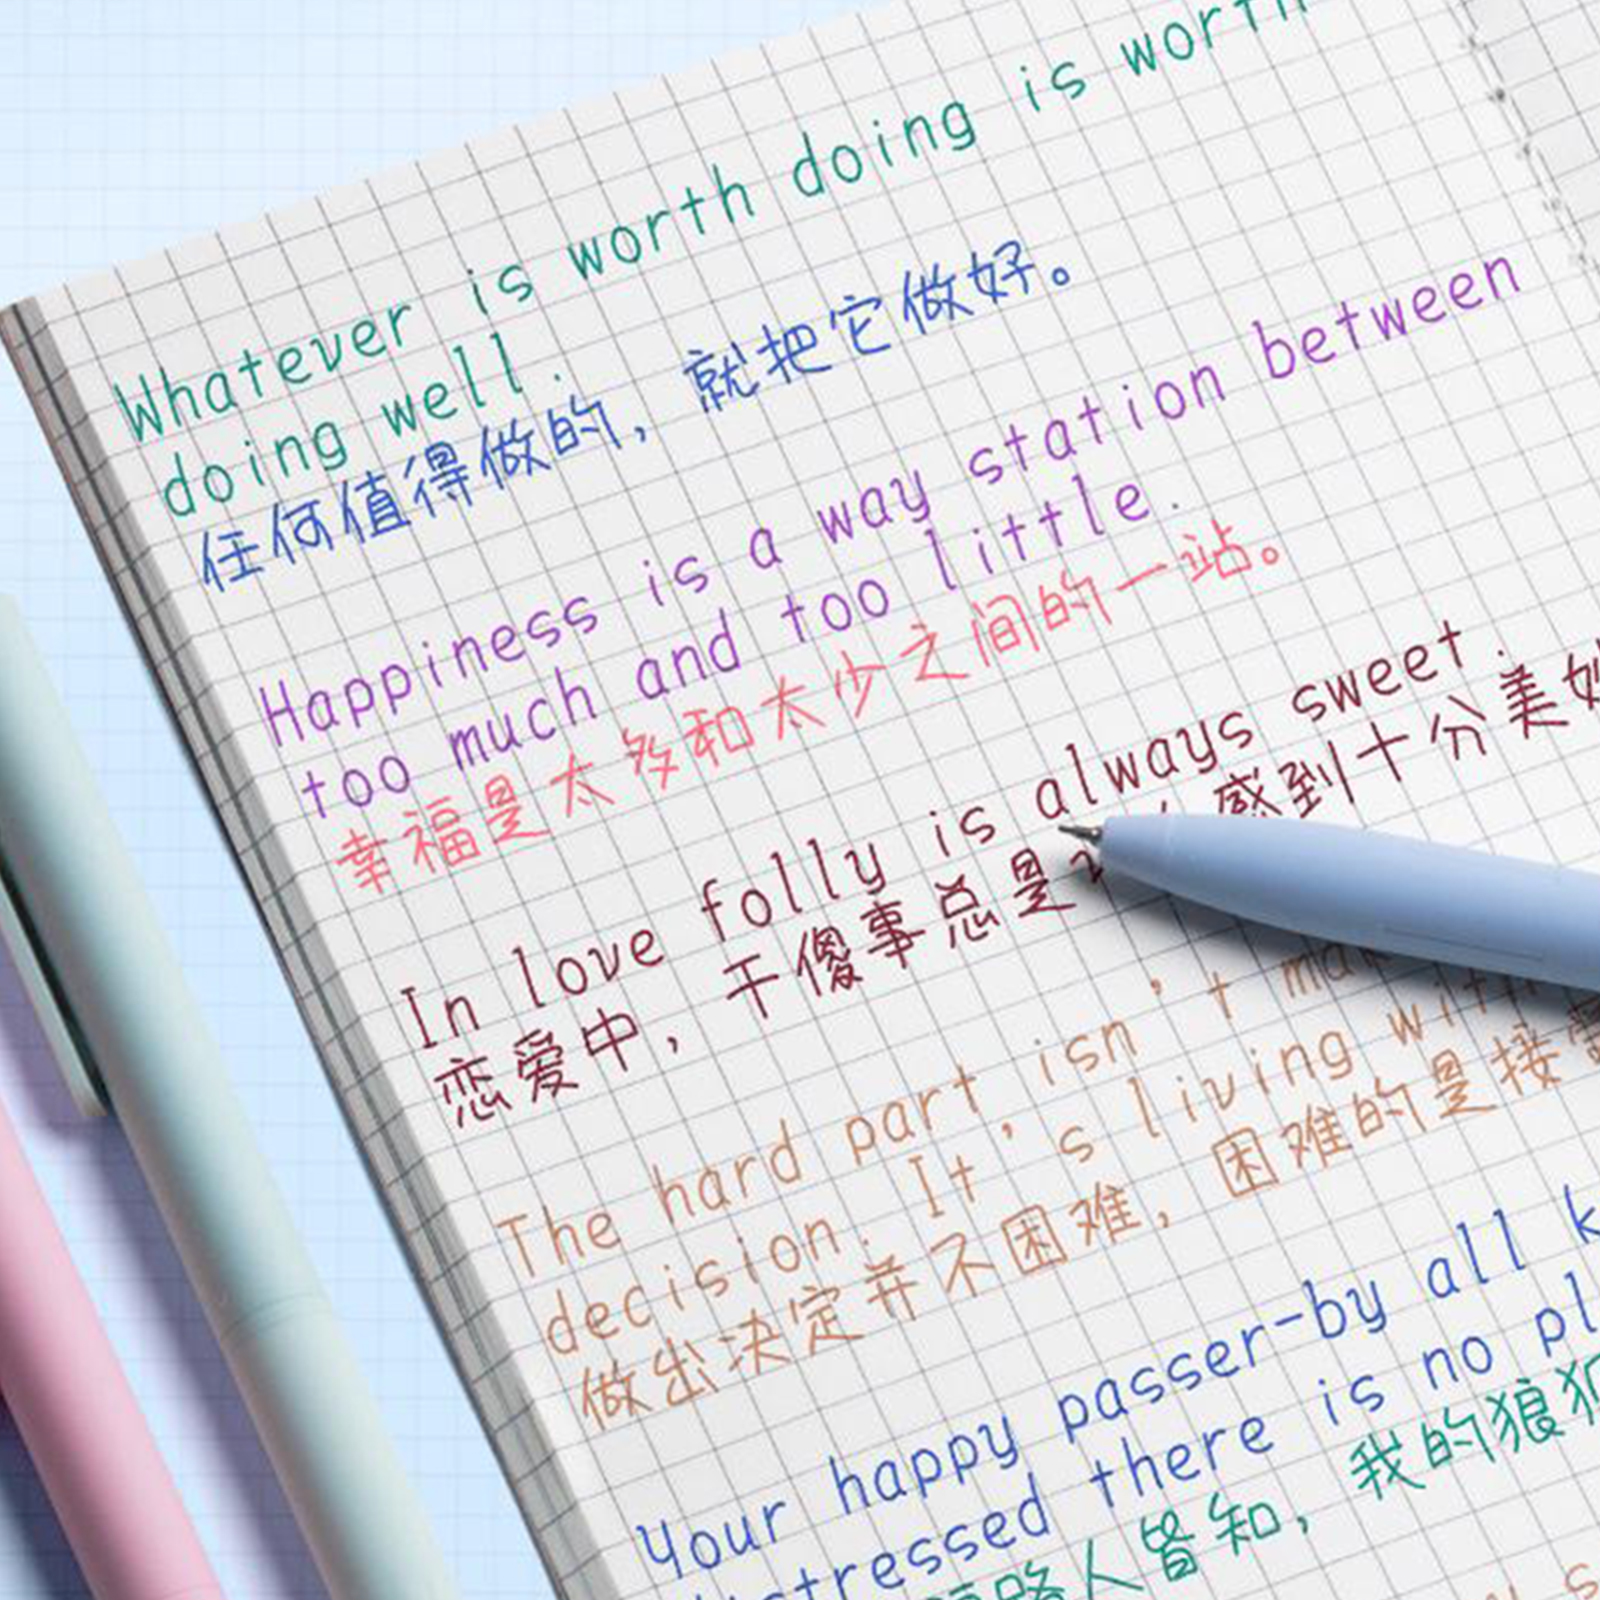 Whatever is worth doing is worth
doing well.
任何值得做的，就把它做好。
Happiness is a way station between
too much and too little.
幸福是太多和太少之间的一站。
In love folly is always sweet.
恋爱中，干傻事总是 感到十分美妙
The hard part, isn't
decision. It's living with
做出决定并不困难，困难的是接
Your happy passer-by all
there is no
路人皆知，我的狼狈